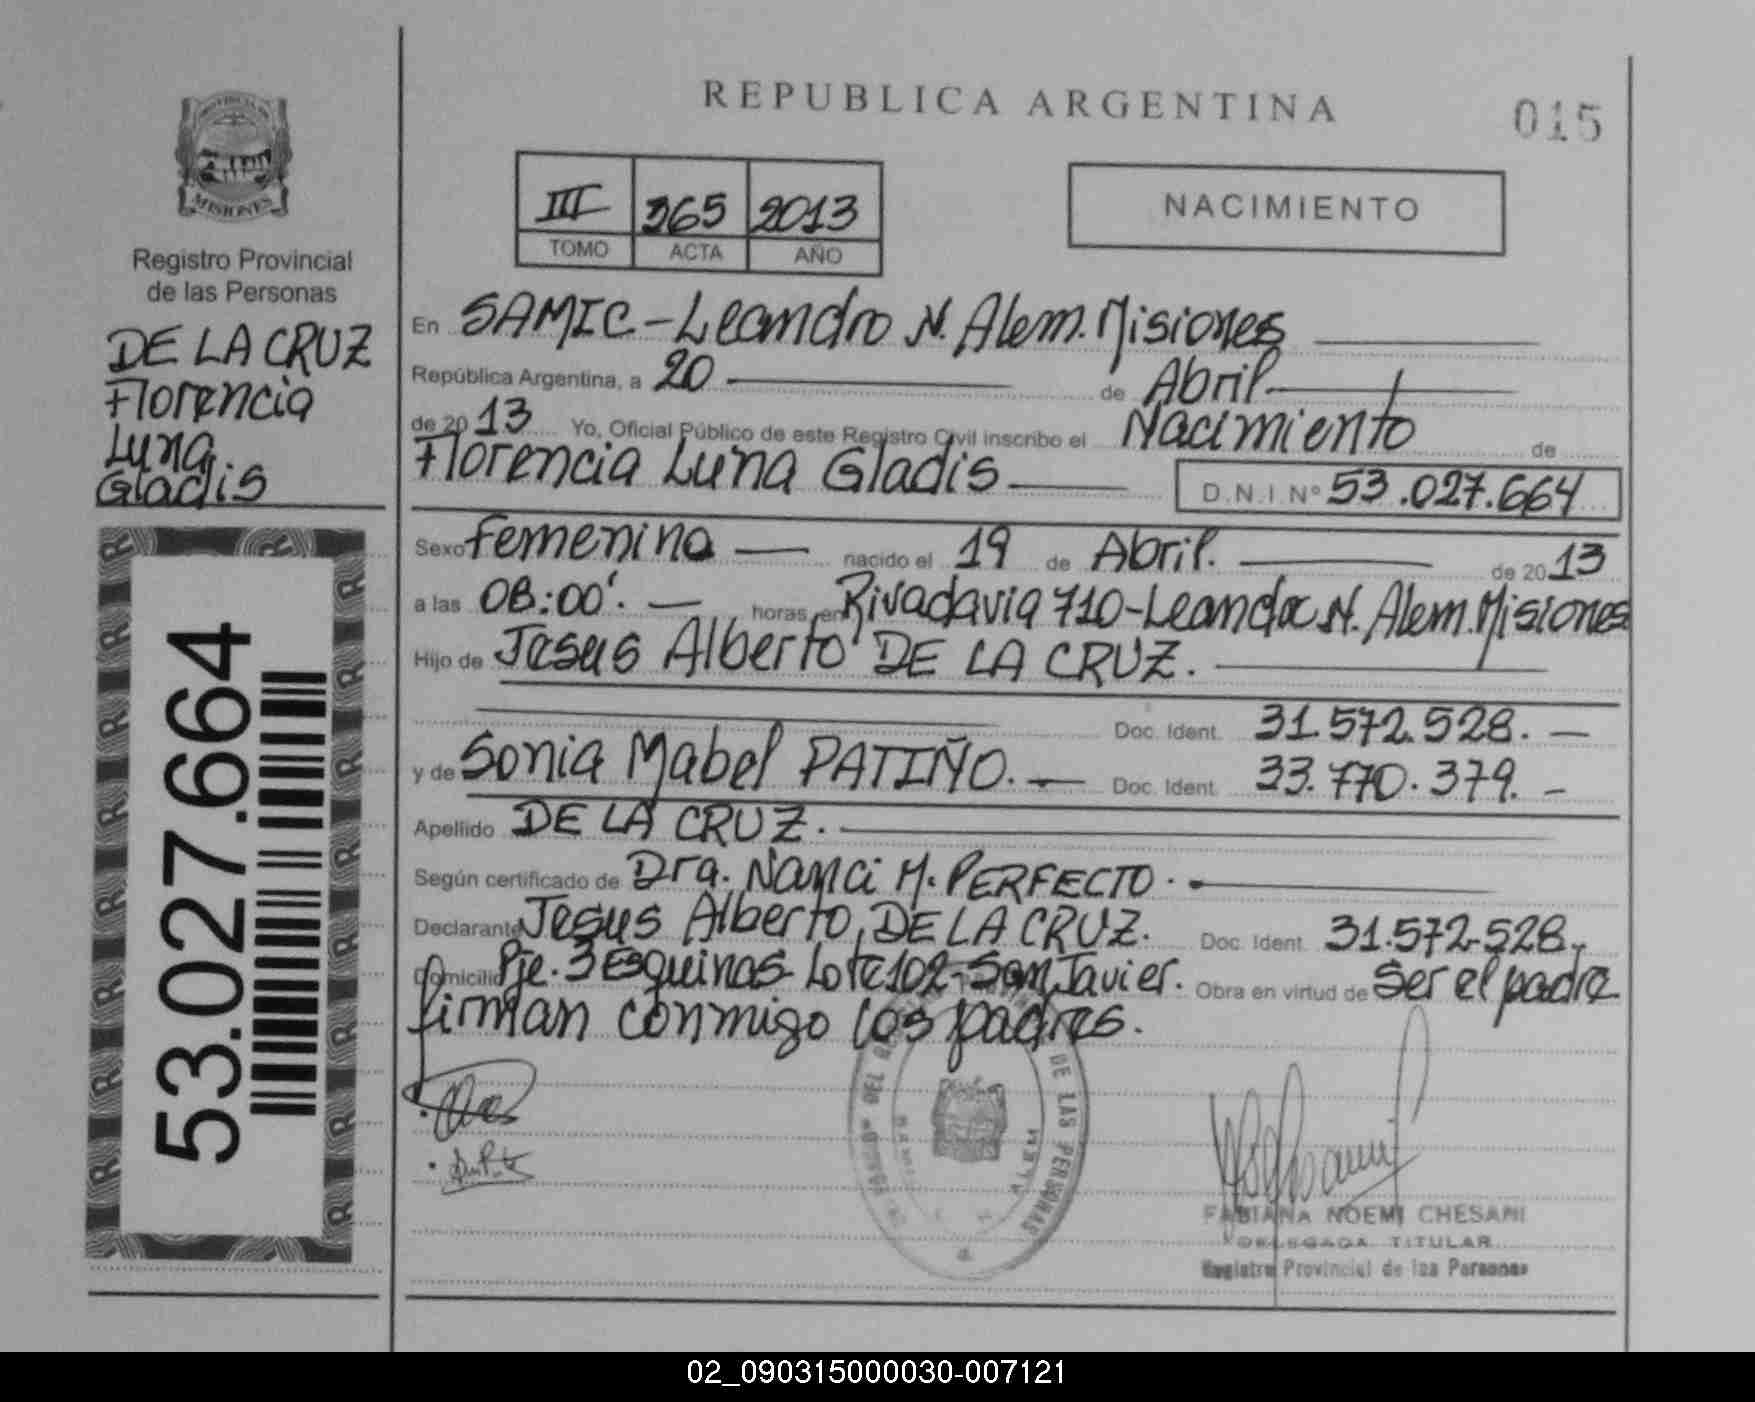 PROVINCIA DE
MISIONES
Registro Provincial
de las Personas
DE LA CRUZ
Florencia
Luna
Gladis
53.027.664
REPUBLICA ARGENTINA
015
III 365 2013
TOMO ACTA AÑO
NACIMIENTO
En SAMIC-Leandro N. Alem. Misiones
República Argentina, a 20 de Abril
de 2013 Yo, Oficial Público de este Registro Civil inscribo el Nacimiento de
Florencia Luna Gladis D.N.I. Nº 53.027.664
Sexo femenino nacido el 19 de Abril. de 2013
a las 08:00'. horas, en Rivadavia 710-Leandro N. Alem. Misiones
Hijo de Jesus Alberto DE LA CRUZ.
Doc. Ident. 31.572.528.
y de Sonia Mabel PATIÑO. Doc. Ident. 33.770.379.
Apellido DE LA CRUZ.
Según certificado de Dra. Nanci M. PERFECTO.
Declarante Jesus Alberto DE LA CRUZ. Doc. Ident. 31.572.528.
Domicilio Pje. 3 Esquinas Lote 102-San Javier. Obra en virtud de ser el padre
firman conmigo los padres.
DE LAS PERSONAS
FABIANA NOEMI CHESANI
DELEGADA TITULAR
Registro Provincial de las Personas
02_090315000030-007121